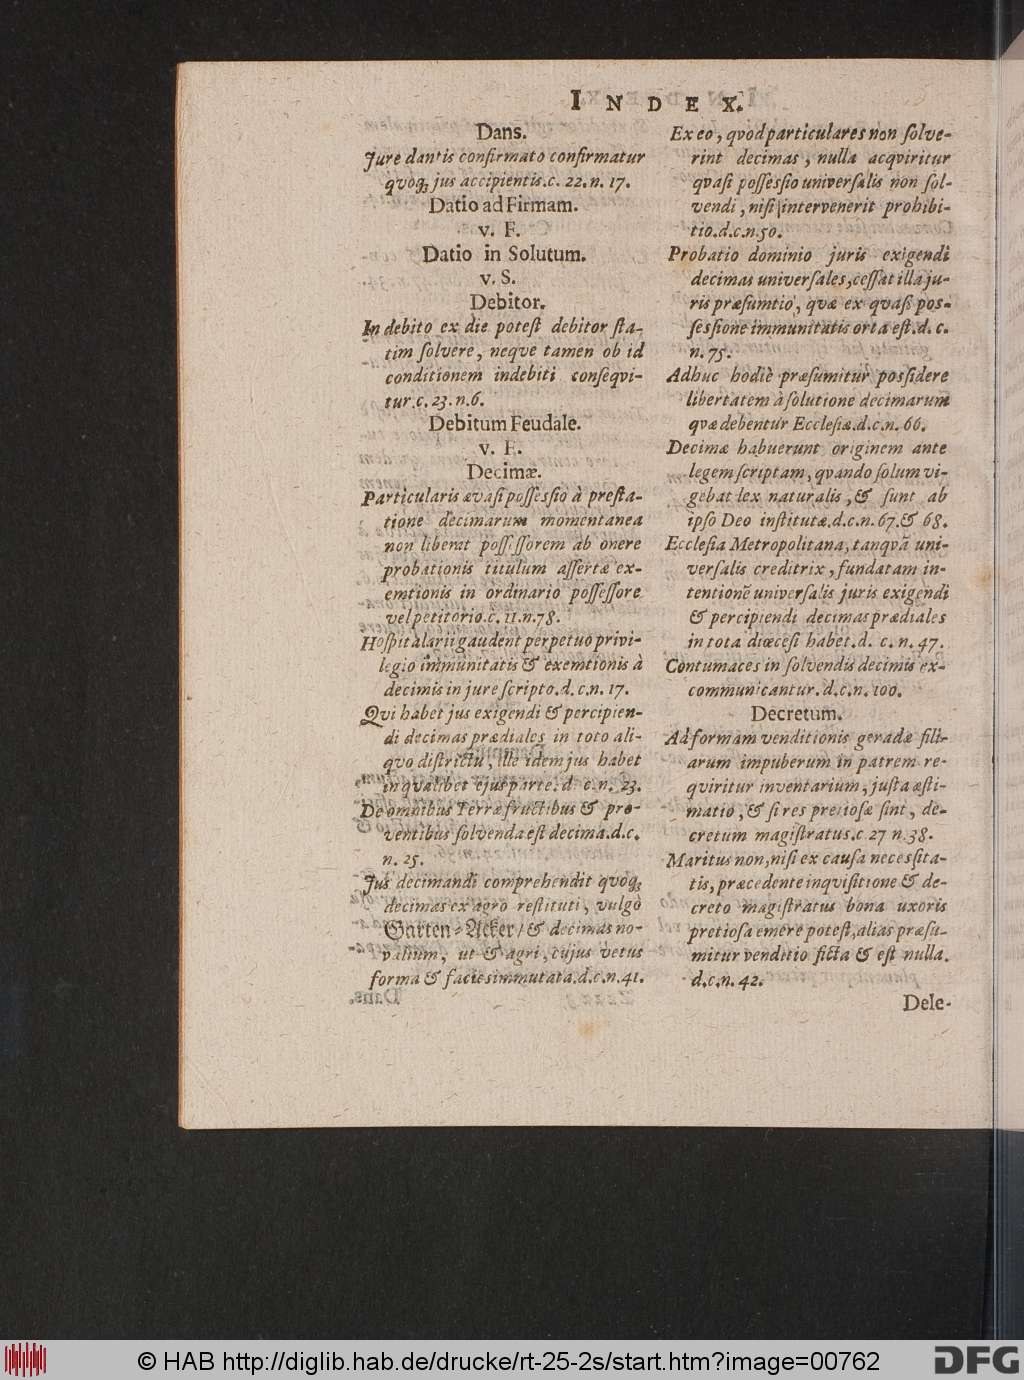 INDEX.
Dans.
Jure dantis confirmato confirmatur
qvoq; jus accipientis.c. 22.n. 17.
Datio ad Firmam.
v. F.
Datio in Solutum.
v. S.
Debitor.
In debito ex die poteſt debitor ſta-
tim ſolvere, neque tamen ob id
conditionem indebiti conſeqvi-
tur.c. 23.n.6.
Debitum Feudale.
v. F.
Decimæ.
Particularis qvaſi poſſeſſio à preſta-
tione decimarum momentanea
non liberat poſſeſſorem ab onere
probationis titulum aſſertæ ex-
emtionis in ordinario poſſeſſore
vel petitorio.c. 11.n.78.
Hoſpitalarii gaudent perpetuo privi-
legio immunitatis & exemtionis à
decimis in jure ſcripto.d.c.n. 17.
Qvi habet jus exigendi & percipien-
di decimas prædiales in toto ali-
qvo diſtrictu, ille idem jus habet
in qvalibet ejus parte. d. c.n. 23.
De omnibus Terræ fructibus & pro-
ventibus ſolvenda eſt decima.d.c.
n. 25.
Jus decimandi comprehendit qvoq;
decimas ex agro reſtituti, vulgò
Garten-Acker/ & decimas no-
valium, ut & agri, cujus vetus
forma & facies immutata.d.c.n.41.
Ex eo, qvod particulares non ſolve-
rint decimas, nulla acqviritur
qvaſi poſſeſſio univerſalis non ſol-
vendi, niſi intervenerit prohibi-
tio.d.c.n.50.
Probatio dominio juris exigendi
decimas univerſales, ceſſat illa ju-
ris præſumtio, quæ ex qvaſi poſ-
ſeſſione immunitatis orta eſt.d. c.
n. 75.
Adhuc hodiè præſumitur poſſidere
libertatem à ſolutione decimarum
qvæ debentur Eccleſiæ.d.c.n. 66.
Decimæ habuerunt originem ante
legem ſcriptam, qvando ſolum vi-
gebat lex naturalis, & ſunt ab
ipſo Deo inſtitutæ.d.c.n.67.& 68.
Eccleſia Metropolitana, tanqvã uni-
verſalis creditrix, fundatam in-
tentionē univerſalis juris exigendi
& percipiendi decimas prædiales
in tota diœceſi habet.d. c. n. 47.
Contumaces in ſolvendis decimis ex-
communicantur.d.c.n. 100.
Decretum.
Ad formam venditionis geradæ fili-
arum impuberum in patrem re-
qviritur inventarium, juſta æſti-
matio, & ſi res pretioſæ ſint, de-
cretum magiſtratus.c 27 n.38.
Maritus non, niſi ex cauſa neceſſita-
tis, præcedente inqviſitione & de-
creto magiſtratus bona uxoris
pretioſa emere poteſt, alias præſu-
mitur venditio ficta & eſt nulla.
d.c.n. 42.
Dele-
© HAB http://diglib.hab.de/drucke/rt-25-2s/start.htm?image=00762
DFG